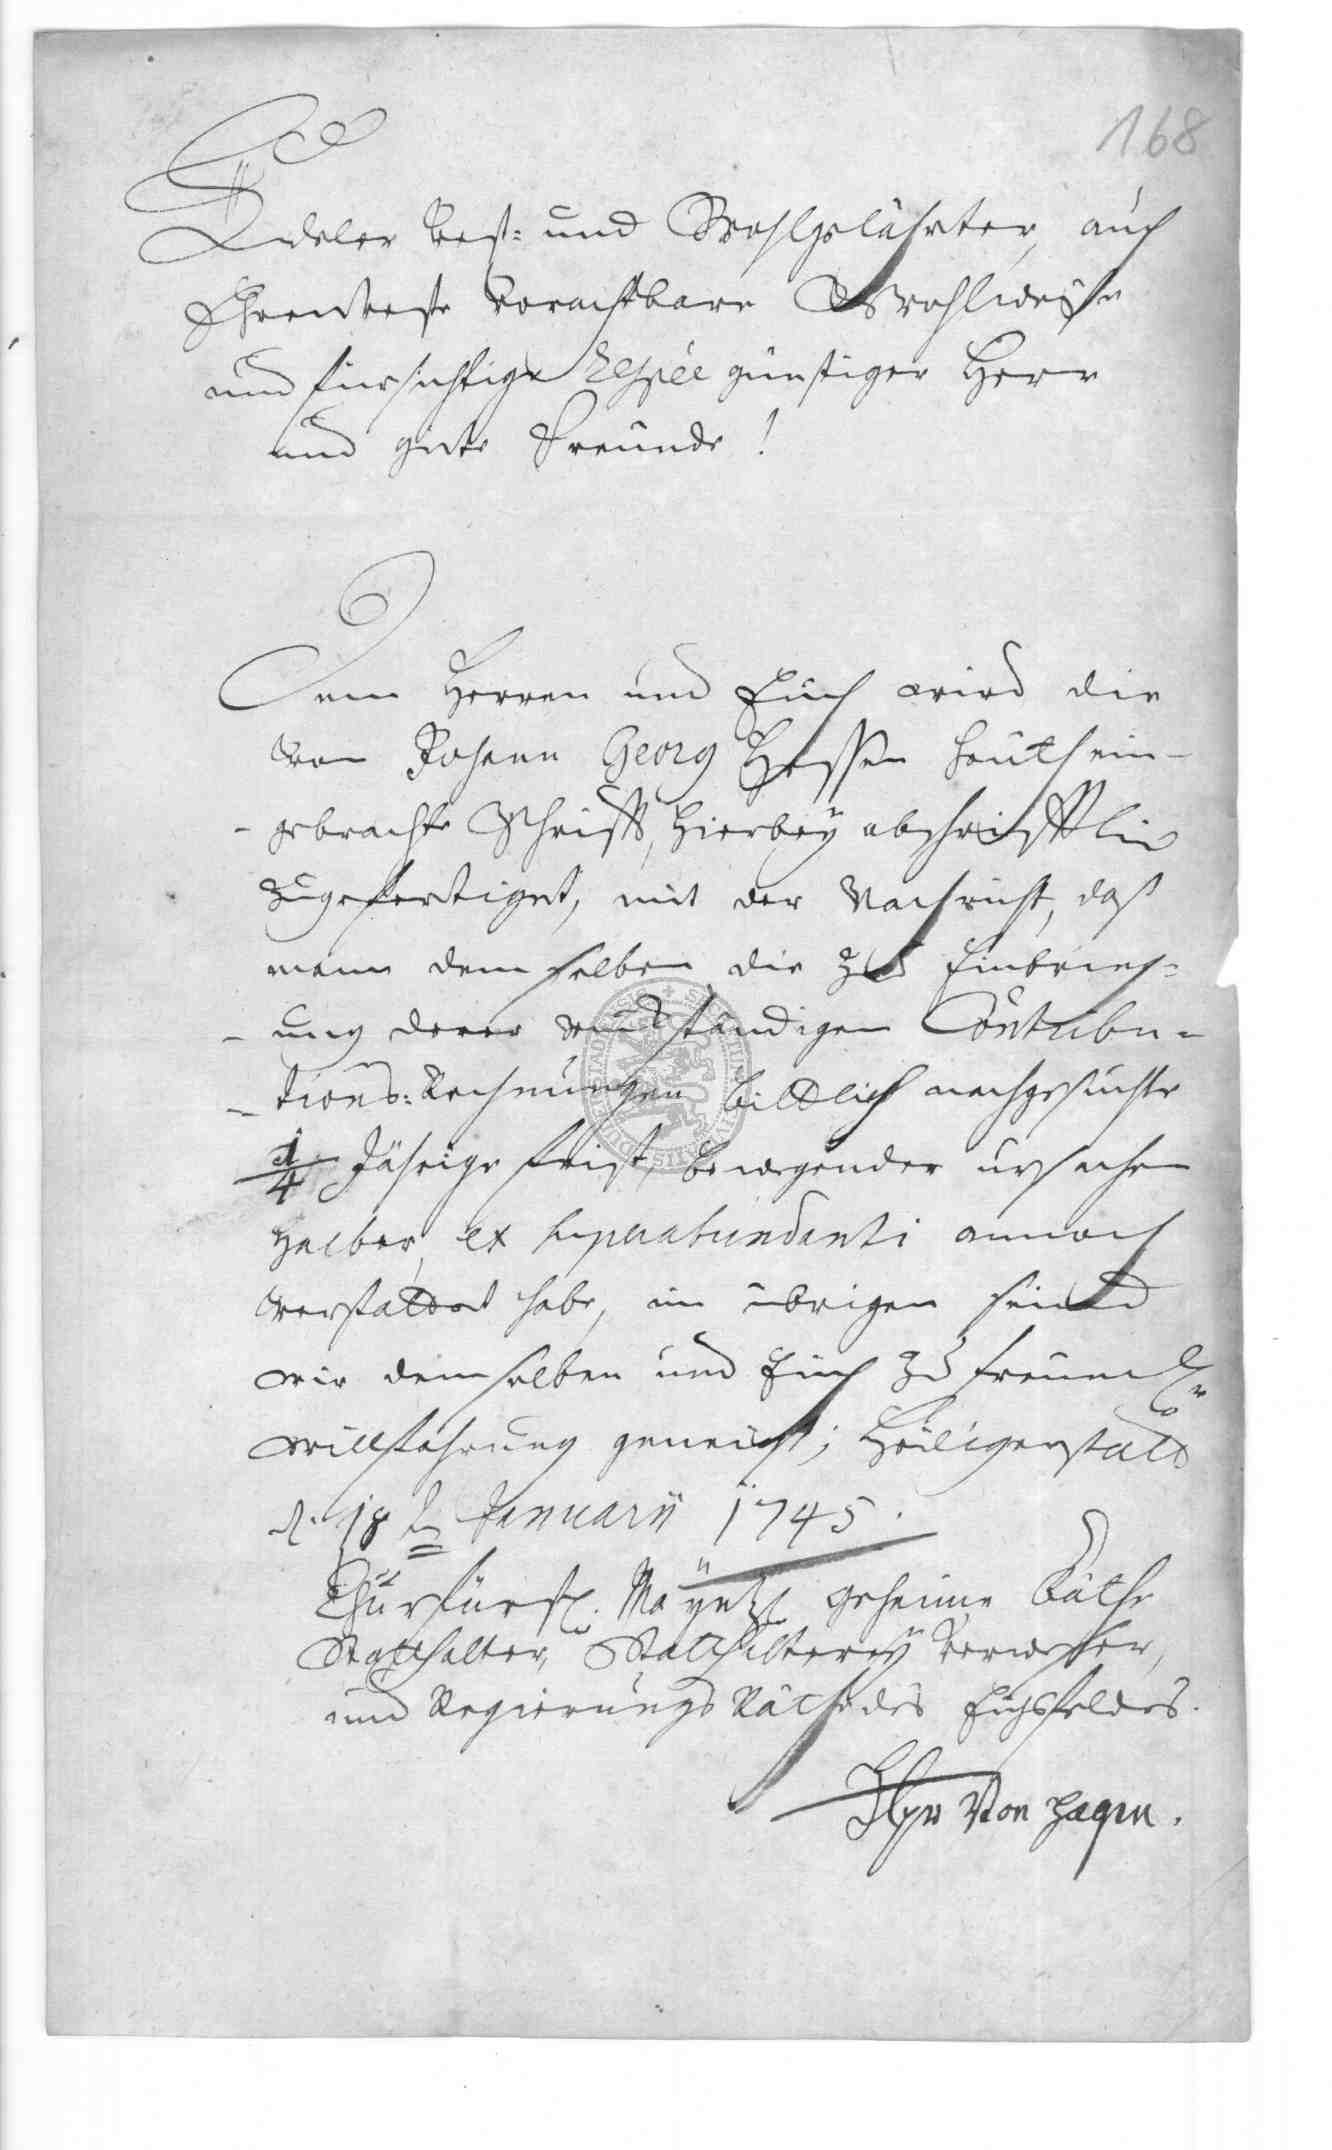 168
Edeler Vest: und Wohlgelährter, auch
Ehrenveste Vorachtbare Wohlweise
und fürsichtige respèe günstiger Herr
und gute Freunde!
Dem Herren und Euch wird die
von Johann Georg Hessen heuth ein-
- gebrachte Schrifft, hierbey abschrifftlich
zugefertiget, mit der Nachricht, daß
mann demselben die zu Einbring=
- ung derer rückständigen Contribu=
- tions: Rechnungen bittlich nachgesuchte
1/4 Jährige frist, bewegender ursachen
halber, ex superabundanti annoch
verstattet habe, im übrigen seind
wir demselben und Euch zu freundl.
willfahrung geneigt; Heiligenstatt
d. 18t Januarii 1745.
Churfürstl. Mayntzl. geheime Räthe
Statthalter, Statthalterey Verweser,
und Regierungs Räthe des Eichsfeldes.
von Hagen.